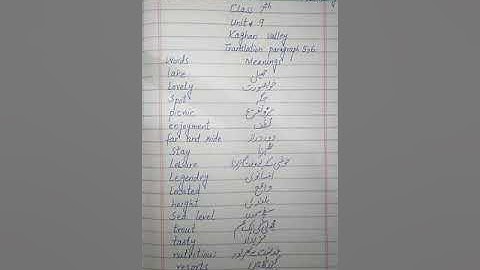 Class 7th
Unit # 9
Kaghan Valley
Translation paragraph 5,6
Words Meanings
lake جھیل
Lovely خوبصورت
Spot جگہ
picnic
enjoyment لطف
far and wide دور دراز
Stay ٹھہرنا
Leisure
Legendry افسانوی
Located واقع
height بلندی
Sea level سطح سمندر
trout
tasty مزیدار
nutritious
resorts